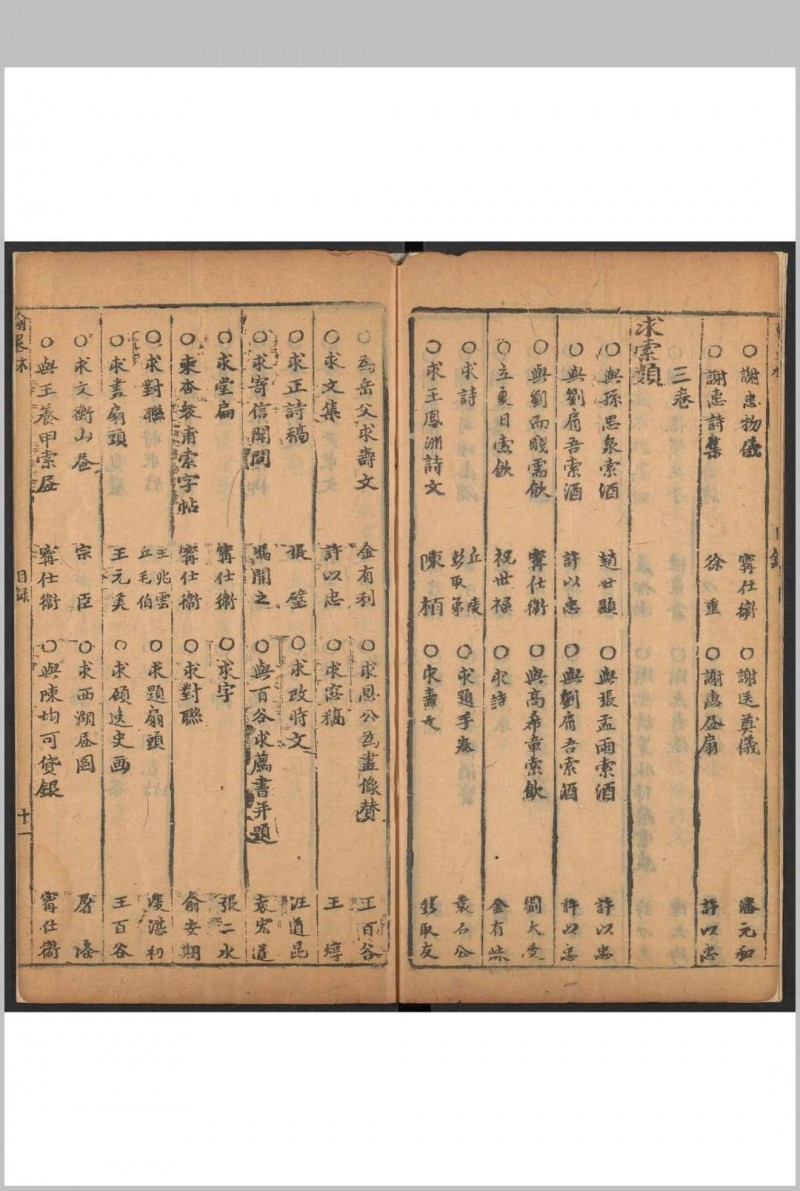 ○謝惠物儀 甯仕衛 ○謝送奠儀 潘元和
○謝惠詩集 徐重 ○謝惠㞧扇 許以忠
三卷
求索類
○與孫思泉索酒 趙世顯 ○與張孟雨索酒 許以忠
○與劉肩吾索酒 許以忠 ○與劉肩吾索酒 許以忠
○與劉而賤需飲 甯仕衛 ○與高希章索飲 劉大
○立夏日索飲 祝世祿 ○求詩 金有
○求詩 丘 彭取第 ○求題手卷 袁石公
○求王鳳洲詩文 陳楨 ○求壽文 錢取友
○為岳父求壽文 金有利 ○求恩公為畫像贊 王百谷
○求文集 許以忠 ○求窓稿 王焞
○求正詩稿 張璧 ○求改時文 汪道昆
○求寄信聞問 馮開之 ○與百谷求薦書并題 袁宏道
○求堂扁 甯仕衛 ○求字 張二水
○柬杏 甫索字帖 甯仕衛 ○求對聯 俞安期
○求對聯 王兆雲 丘毛伯 ○求題扇頭 凌湛初
○求畫扇頭 王元美 ○求碩迭史画 王百谷
○求文衡山㞧 宗臣 ○求西湖㞧圖 屠隆
○與王養甲索㞧 甯仕衛 ○與陳均可貸銀 甯仕衛
目錄
十一